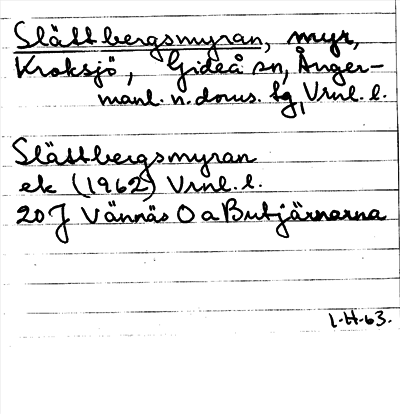 Slättbergsmyran, myr,
Kroksjö, Gideå sn, Ånger-
manl. n. doms. tg, Vrnl. l.
Slättbergsmyran
ek (1962) Vrnl. l.
20 J Vännäs O a Butjärnarna
L-H-63.